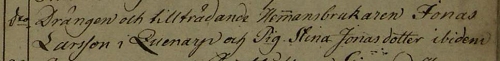 dto Drängen och tillträdande Hemansbrukaren Jonas
Larsson i Quenarp och Pig. Stina Jonasdotter ibidem